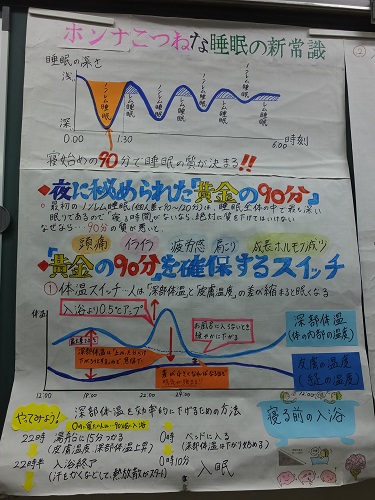 ホンナこつねな睡眠の新常識
②
睡眠の深さ
浅
深
ノンレム睡眠
レム睡眠
ノンレム睡眠
レム睡眠
ノンレム睡眠
レム睡眠
ノンレム睡眠
レム睡眠
0:00
1:30
6:00
時刻
寝始めの90分で睡眠の質が決まる!!
◆夜に秘められた「黄金の90分」
最初のノンレム睡眠(個人差70~120分)は、睡眠全体の中で最も深い
眠りであるので「寝る時間がないなら、絶対に質を下げてはいけない
なぜなら…90分の質が悪いと、
頭痛 イライラ 疲労感 肩こり 成長ホルモン減少
◆「黄金の90分」を確保するスイッチ
①体温スイッチ…人は「深部体温」と「皮膚温度」の差が縮まると眠くなる
体温
入浴より0.5℃アップ
お風呂に入らないとき
緩やかに下がる
深部体温は
差が小さくなれば
深部体温
(体の内部の温度)
皮膚の温度
12:00
18:00
22:00
24:00
やってみよう!
深部体温を効率的に下げるための方法
22時 湯船に15分つかる
(皮膚温度、深部体温上昇)
22時半 入浴終了
(汗もかくなどして、熱放散がスタート)
0時 ベッドに入る
(深部体温は下がり始める)
0時10分 入眠
寝る前の入浴